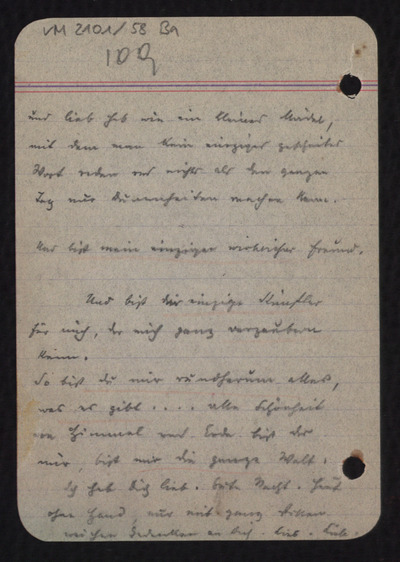 VM 2101/58 Ba
109
und lieb hab wie ein kleines Mädel,
mit dem man kein einziges gescheites
Wort reden und nichts als den ganzen
Tag nur Dummheiten machen kann.
Und bist mein einziger wirklicher Freund.
Und bist der einzige Künstler
für mich, der mich ganz verzaubern
kann.
So bist du mir rundherum alles,
was es gibt .... alle Schönheit
von Himmel und Erde bist du
mir, bist mir die ganze Welt.
Ich hab dich lieb. Gute Nacht.
ohne Hund, nur mit ganz
weichen Gedanken an dich.